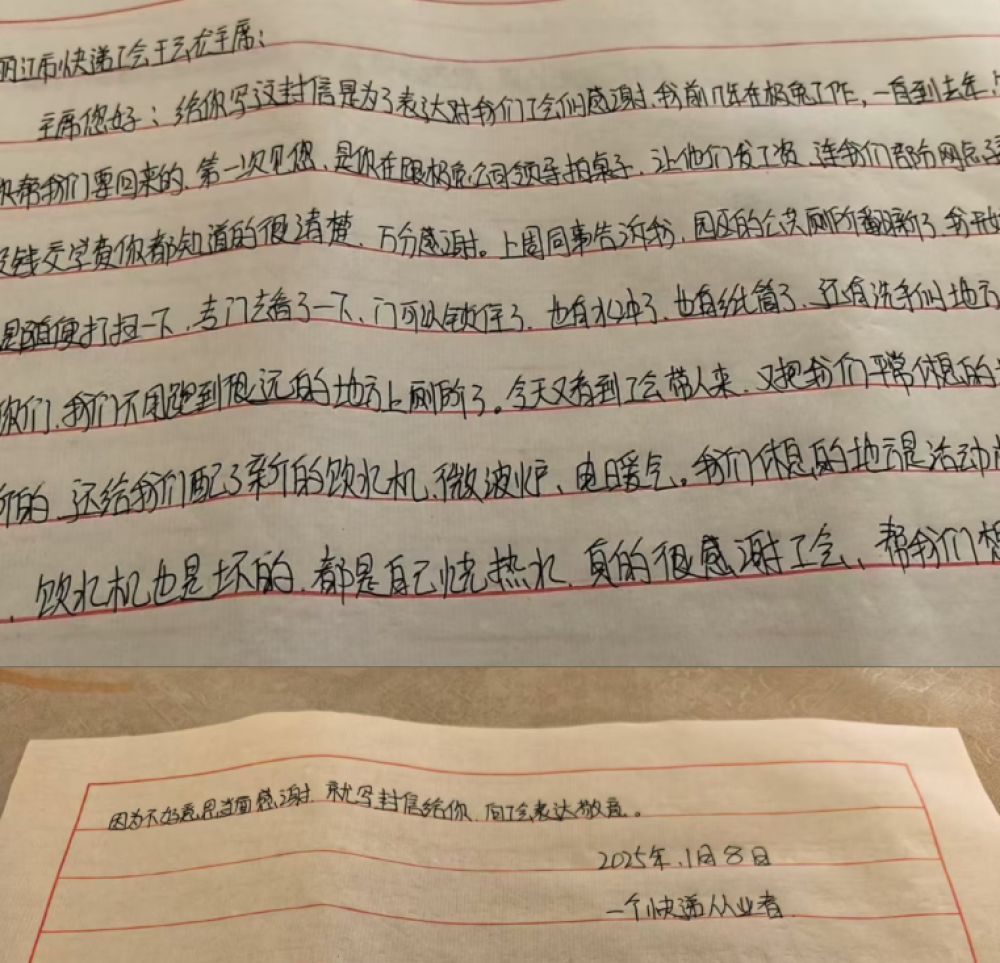 丽江市快递工会于云龙主席：
主席您好：给你写这封信是为了表达对我们工会们感谢、我前几年在极兔工作，一直到去年、
帮我们要回来的、第一次见您、是你在跟极兔公司领导拍桌子、让他们发工资、连我们部分网点
没钱交学费你都知道的很清楚、万分感谢。上周同事告诉我、园区的公共厕所翻新了、我开始
是随便打扫一下、专门去看了一下、门可以锁住了、也有水冲了、也有纸筒了、还有洗手们地方
你们、我们不用跑到很远的地方上厕所了。今天又看到工会带人来、又把我们平常休息的
新的、还给我们配了新的饮水机、微波炉、电暖气。我们休息的地方是活动
、饮水机也是坏的、都是自己烧热水、真的很感谢工会、帮我们
因为不好意思当面感谢、就写封信给你、向工会表达敬意。
2025年、1月8日
一个快递从业者